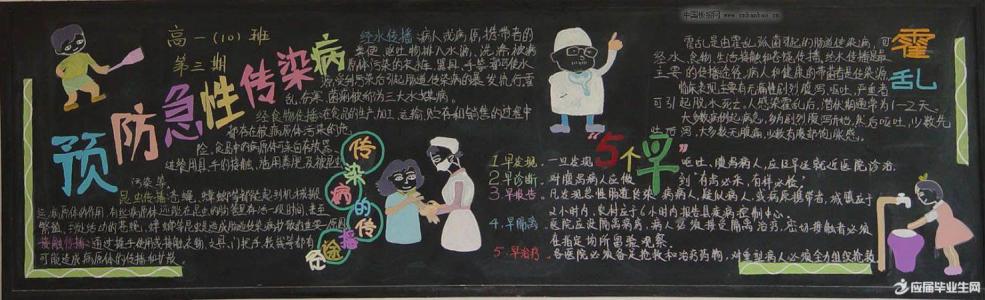 中国板报网
高一(10)班
第三期
预防急性传染病
经水传播:病人或病原携带者的
粪便、呕吐物排入水源,洗涤被病
原体污染的衣服、器具、手等都可使水
源受到污染而引起肠道传染病的暴发流行,霍
乱、伤寒、菌痢被称为三大水媒病。
经食物传播:在食品的生产、加工、运输、贮存和销售的过程中
都存在被病原体污染的危
险,食品中的病原体可来自存放器
昆虫传播:苍蝇、蟑螂等都能起到机械搬
接触传播:通过握手、使用或接触衣物、文具、门把手、钱币等都有
可能造成病原体的传播和扩散。
传染病的传播途径
霍乱
霍乱是由霍乱弧菌引起的肠道传染病,可
经水、食物、生活接触和苍蝇传播,经水传播是最
主要的传播途径,病人和健康的带菌者是传染源,
临床表现主要有无痛性剧烈腹泻、呕吐,严重者
可引起脱水死亡。人感染霍乱后,潜伏期通常为1-2天。
大多数病例起病急,多为剧烈腹泻开始,然后呕吐,少数先
吐后泻,大多数无腹痛,少数有腹部饱胀感。
“5个早”
1.早发现。一旦发现呕吐、腹泻病人,应及早送就近医院诊治。
2.早诊断。对腹泻病人应做到“有泻必采,有样必检”。
3.早报告。凡发现急性肠道传染病病人、疑似病人、或病原携带者,城镇应于
2小时内,农村应于6小时内报告县疾病控制中心。
4.早隔离。医院应设隔离病房,病人必须接受隔离治疗,密切接触者必须
在指定场所留验观察。
5.早治疗。各医院必须备足抢救和治疗药物,对重型病人必须全力组织抢救
应届毕业生网